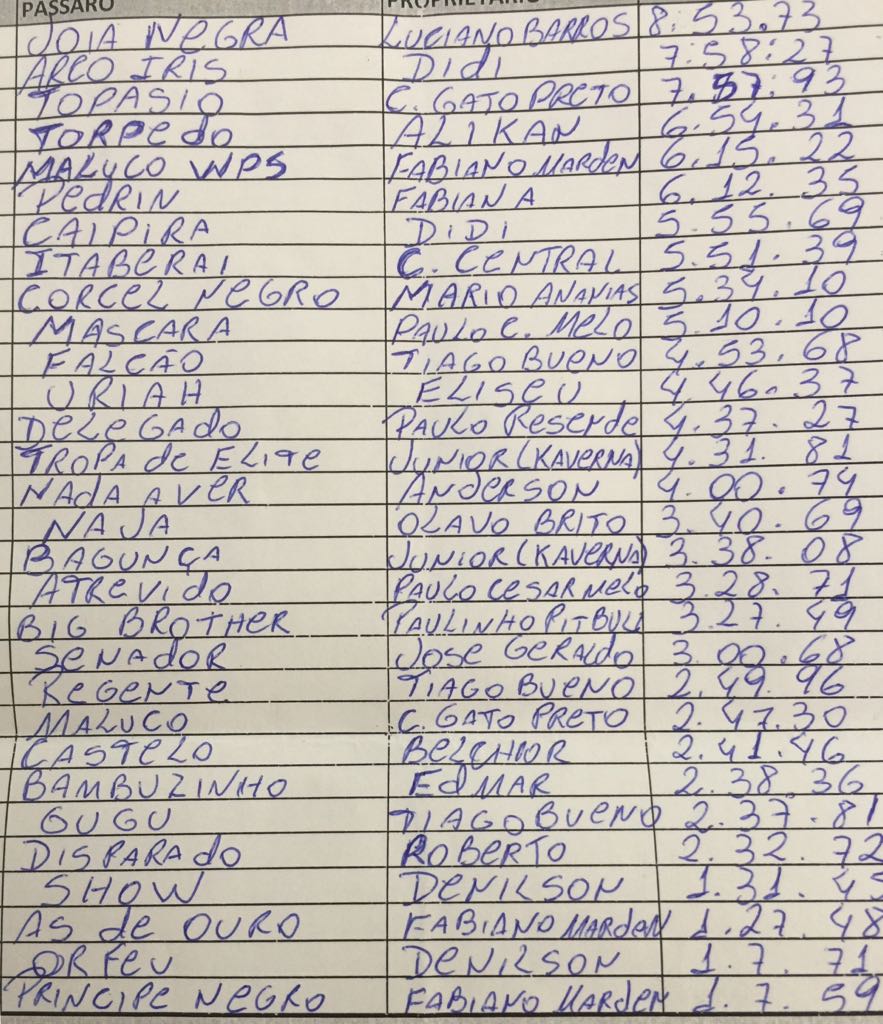 PÁSSARO PROPRIETÁRIO
JOIA NEGRA LUCIANO BARROS 8:53.73
ARCO IRIS DIDI 7:58:27
TOPASIO C. GATO PRETO 7.57:93
TORPEDO ALIKAN 6.54.31
MALUCO WPS FABIANO MARDEN 6.15.22
PEDRIN FABIANA 6.12.35
CAIPIRA DIDI 5.55.69
ITABERAI C. CENTRAL 5.51.39
CORCEL NEGRO MARIO ANANIAS 5.34.10
MASCARA PAULO C. MELO 5.10.10
FALCÃO TIAGO BUENO 4.53.68
URIAH ELISEU 4.46.37
DELEGADO PAULO RESENDE 4.37.27
TROPA DE ELITE JUNIOR (KAVERNA) 4.31.81
NADA A VER ANDERSON 4.00.74
NAJA OLAVO BRITO 3.40.69
BAGUNÇA JUNIOR (KAVERNA) 3.38.08
ATREVIDO PAULO CESAR MELO 3.28.71
BIG BROTHER PAULINHO PITBULL 3.27.49
SENADOR JOSE GERALDO 3.00.68
REGENTE TIAGO BUENO 2.49.96
MALUCO C. GATO PRETO 2.47.30
CASTELO BELCHIOR 2.41.46
BAMBUZINHO EDMAR 2.38.36
GUGU TIAGO BUENO 2.37.81
DISPARADO ROBERTO 2.32.72
SHOW DENILSON 1.31.45
AS DE OURO FABIANO MARDEN 1.27.48
ORFEU DENILSON 1.7.71
PRINCIPE NEGRO FABIANO MARDEN 1.7.59